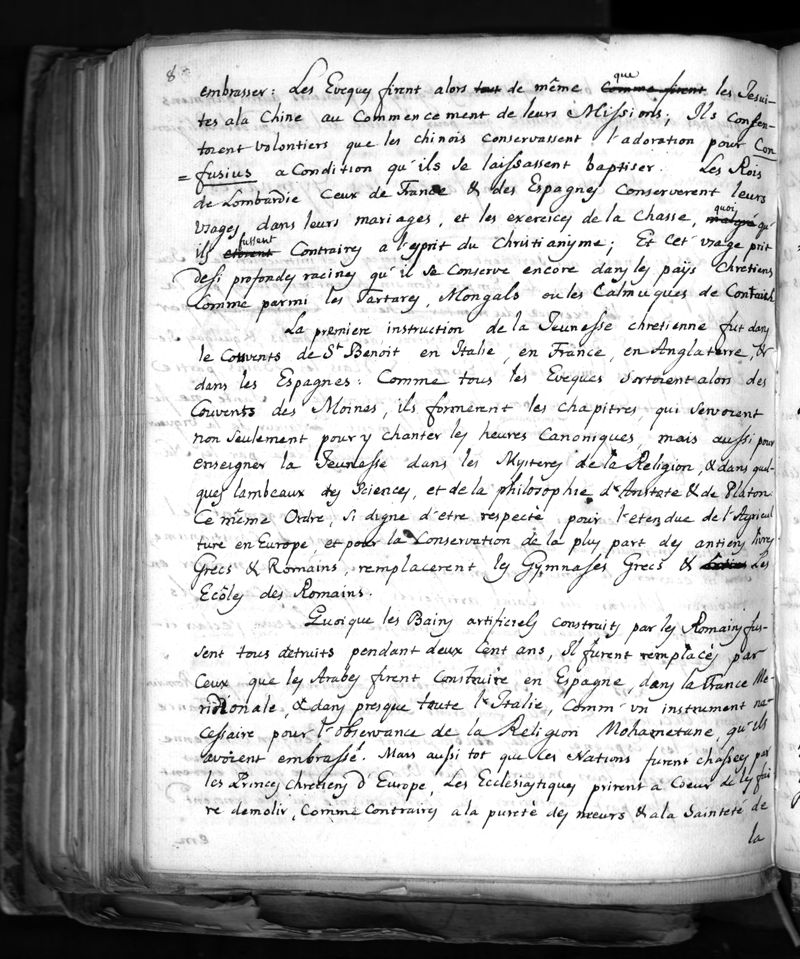 8
embrasser: Les Eveques firent alors tout de même que comme firent les Jesui-
tes ala Chine au Commencement de leurs Missions; Ils Consen-
toient volontiers que les chinois conservassent l'adoration pour Con
=fusius a Condition qu'ils se laissassent baptiser. Les Rois
de Lombardie Ceux de France & des Espagnes Conserverent leurs
Usages dans leurs mariages, et les exercices de la Chasse, malgré quoi qu'
ils etoient fussent Contraires a l'esprit du Christianisme; Et Cet usage prit
desi profondes racines qu'il se Conserve encore dans les païs Chretiens
Comme parmi les Tartares, Mongals ou les Calmuques de Contaish
La premiere instruction de la Jeunesse chretienne fut dans
le Couvents de St Benoit en Italie, en France, en Angleterre, &
dans les Espagnes: Comme tous les Eveques sortoient alors des
Couvents des Moines, ils formerent les chapitres, qui servoient
non seulement pour y chanter les heures Canoniques, mais aussi pour
enseigner la Jeunesse dans les Mysteres de la Religion, & dans quel-
ques lambeaux des Sciences, et de la philosophie d'Aristote & de Platon
Ce même Ordre, si digne d'etre respecté pour l'etendue de l'Agricul
ture en Europe, et pour la Conservation de la plus part des antiens livres
Grecs & Romains, remplacerent les Gymnases Grecs & Les
Ecôles des Romains.
Quoique les Bains artificiels construits par les Romains fus-
sent tous detruits pendant deux Cent ans, Il furent remplacés par
Ceux que les Arabes firent Construire en Espagne, dans la France Me-
ridionale, & dans presque toute l'Italie, Comm' un instrument ne-
cessaire pour l'observance de la Religion Mohametane, qu'ils
avoient embrassé. Mais aussi tot que Ces Nations furent chassées par
les Princes chretiens d'Europe, Les Ecclesiastiques prirent a Coeur de les fai
re demolir, Comme Contraires a la pureté des mœurs & a la Sainteté de
la